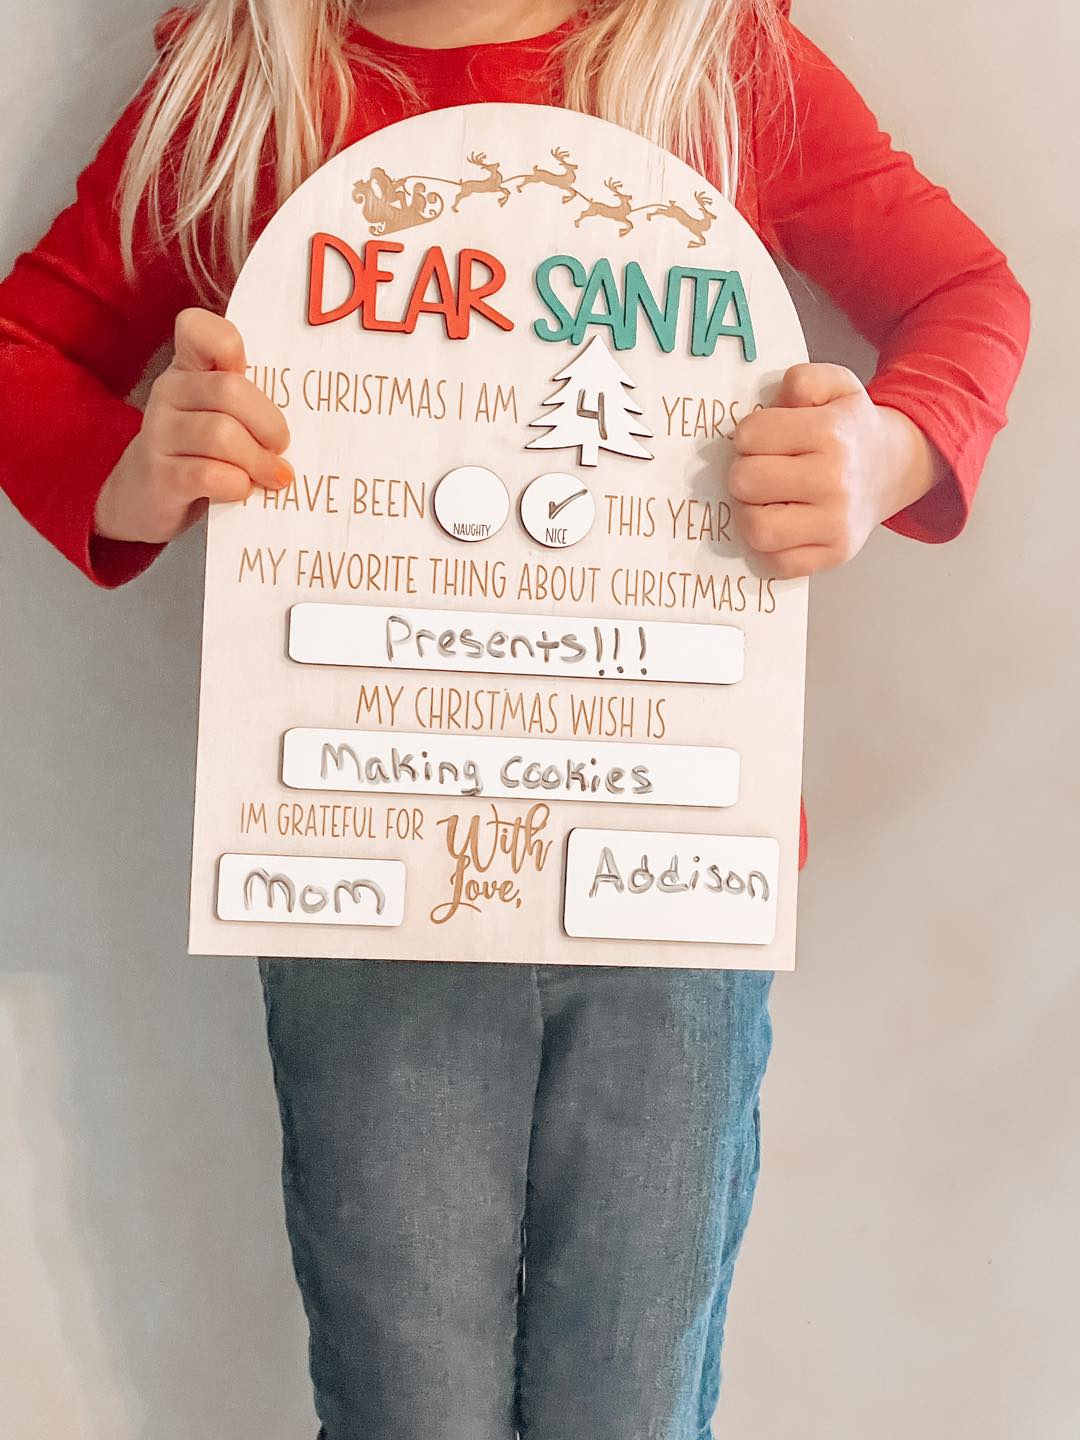 DEAR SANTA
THIS CHRISTMAS I AM 4 YEARS
I HAVE BEEN NAUGHTY NICE ✓ THIS YEAR
MY FAVORITE THING ABOUT CHRISTMAS IS
Presents!!!
MY CHRISTMAS WISH IS
Making Cookies
IM GRATEFUL FOR
Mom
With
Love,
Addison